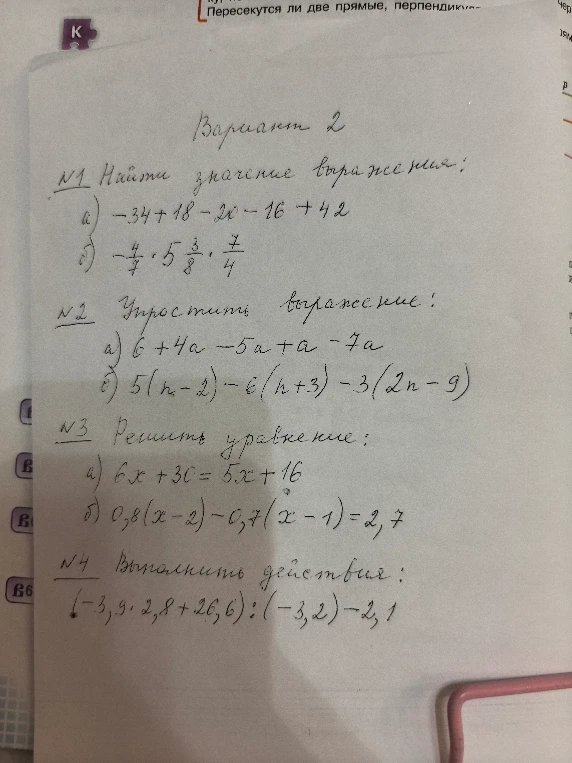 Пересекутся ли две прямые, перпендику
К
Вариант 2
№1 Найти значение выражения:
а) −34+18−20−16+42
б) −4/7 · 5 3/8 · 7/4
№2 Упростить выражение:
а) 6+4a−5a+a−7a
б) 5(n−2)−6(n+3)−3(2n−9)
№3 Решить уравнение:
а) 6x+30=5x+16
б) 0,8(x−2)−0,7(x−1)=2,7
№4 Выполнить действия:
(−3,9·2,8+26,6):(−3,2)−2,1